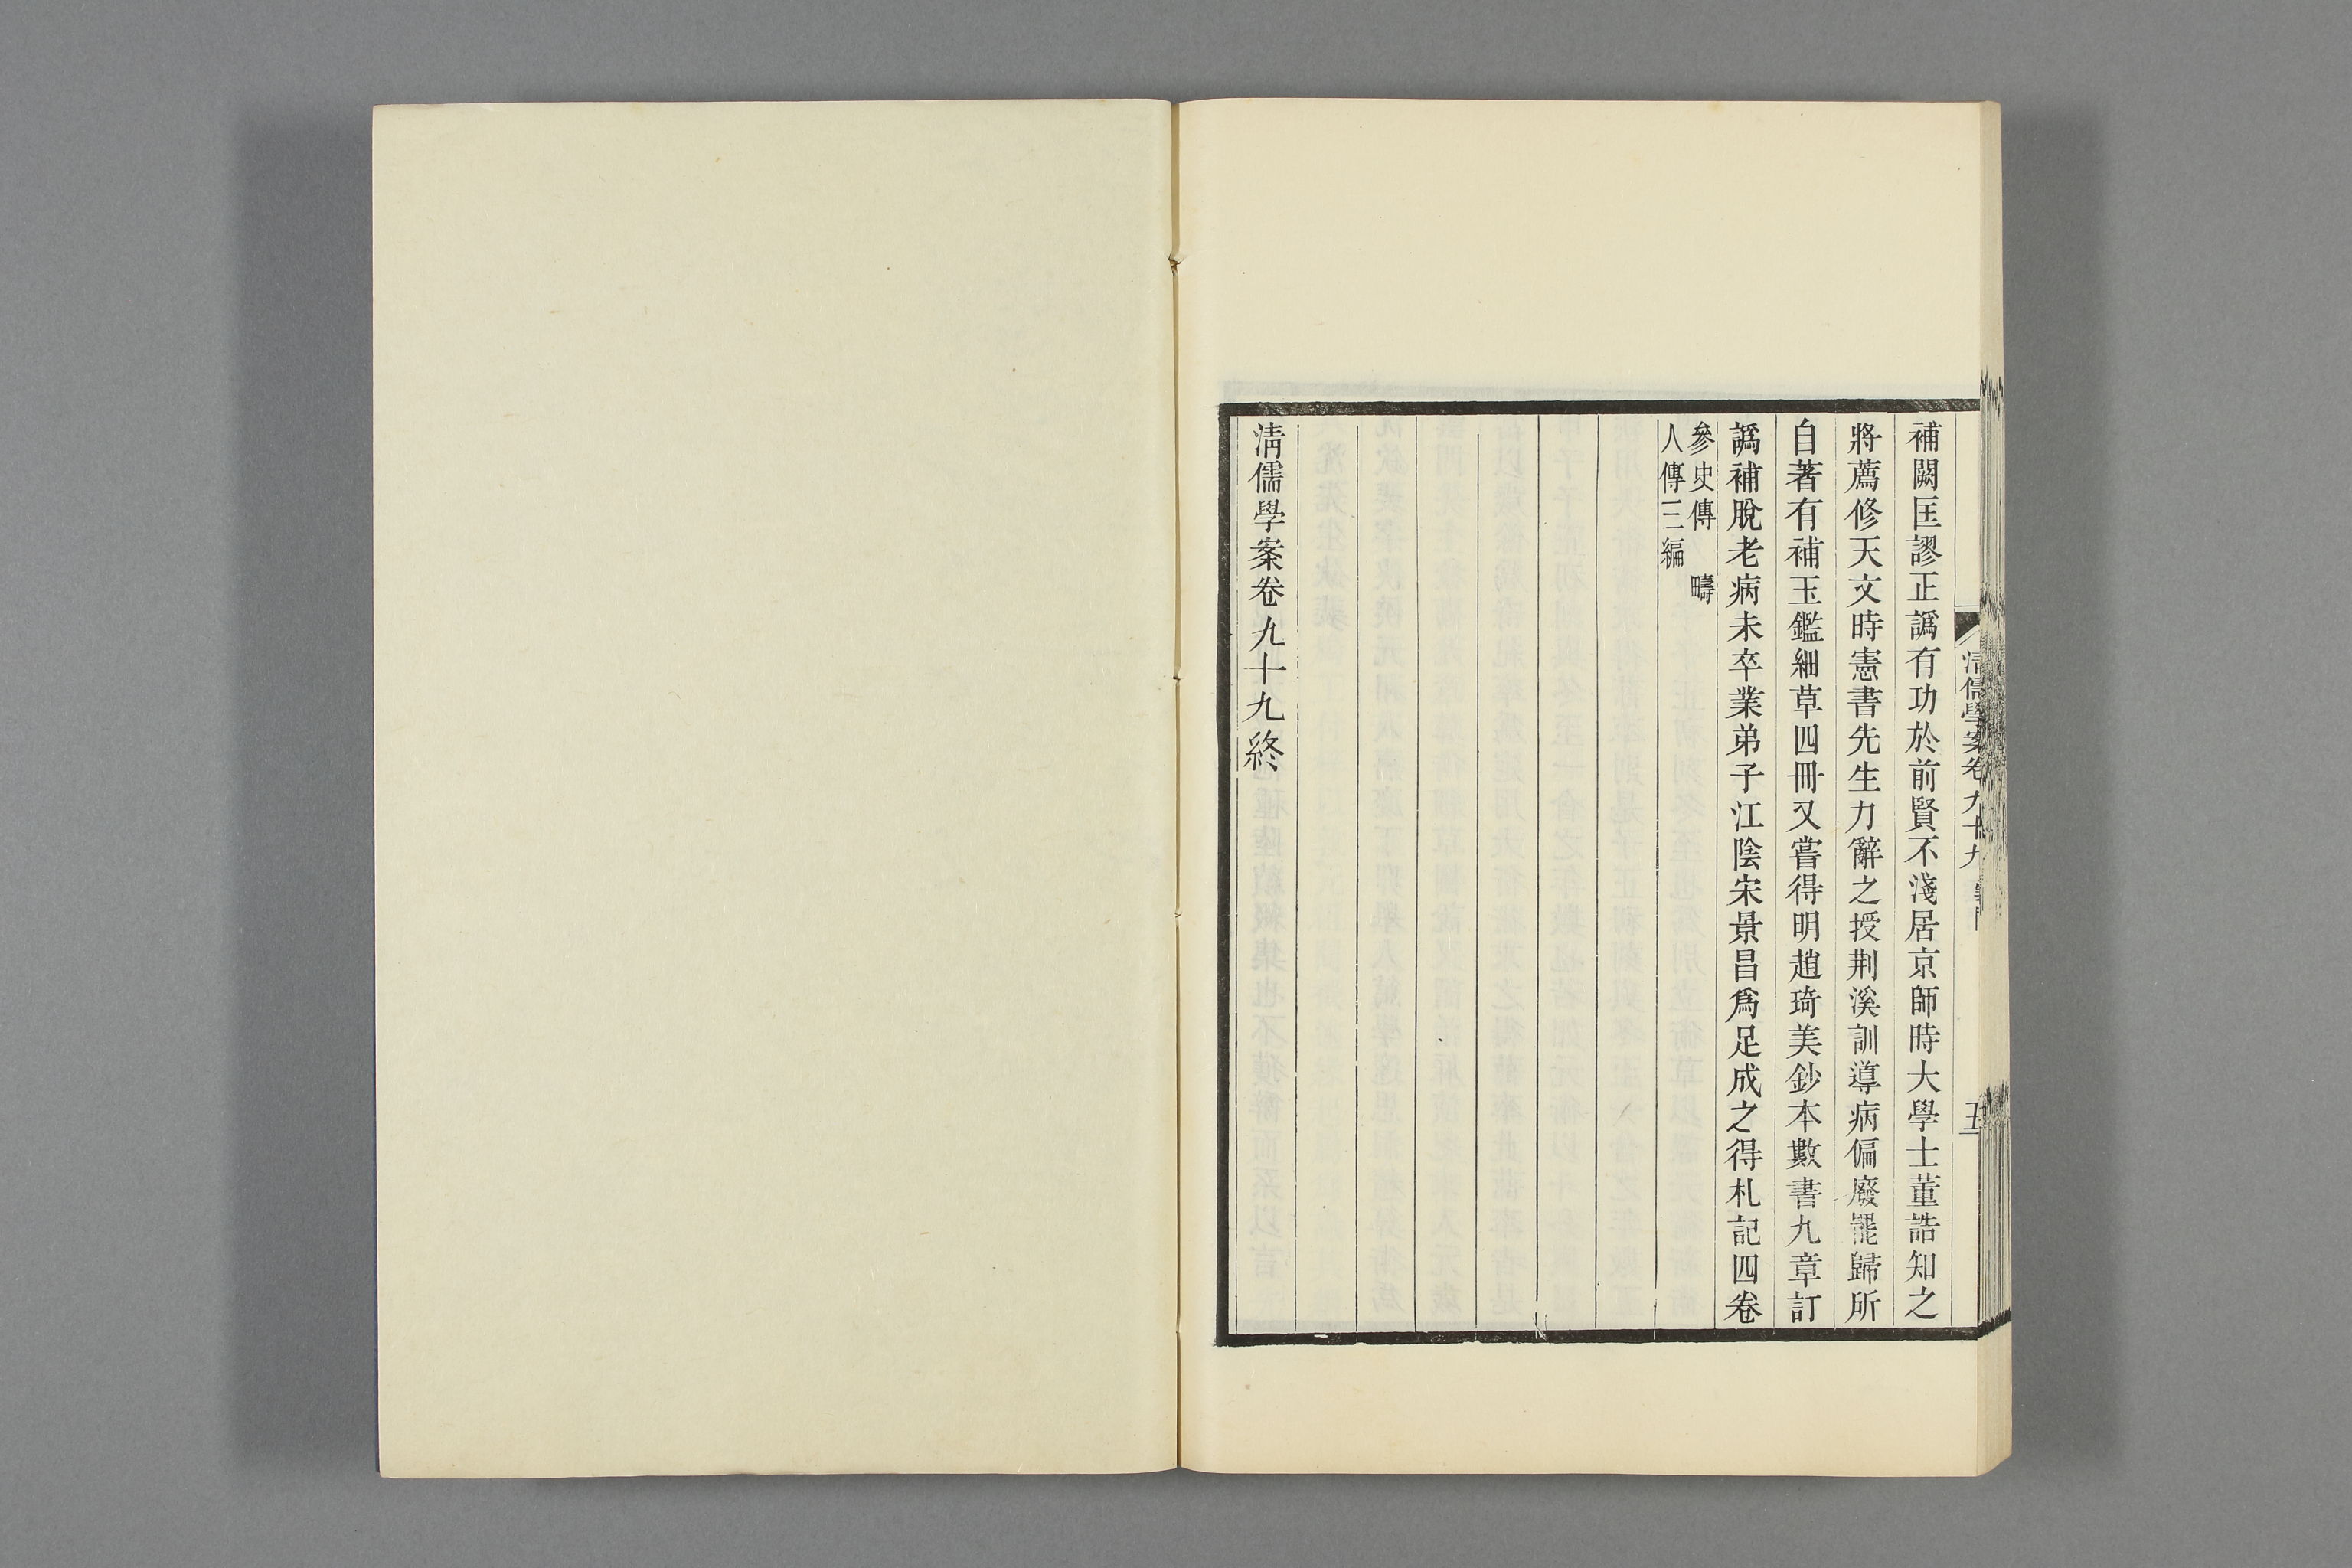 清儒學案卷九十九
五
補闕匡謬正譌有功於前賢不淺居京師時大學士董誥知之
將薦修天文時憲書先生力辭之授荆溪訓導病偏廢罷歸所
自著有補玉鑑細草四冊又嘗得明趙琦美鈔本數書九章訂
譌補脫老病未卒業弟子江陰宋景昌爲足成之得札記四卷
參史傳　疇
人傳三編
清儒學案卷九十九終